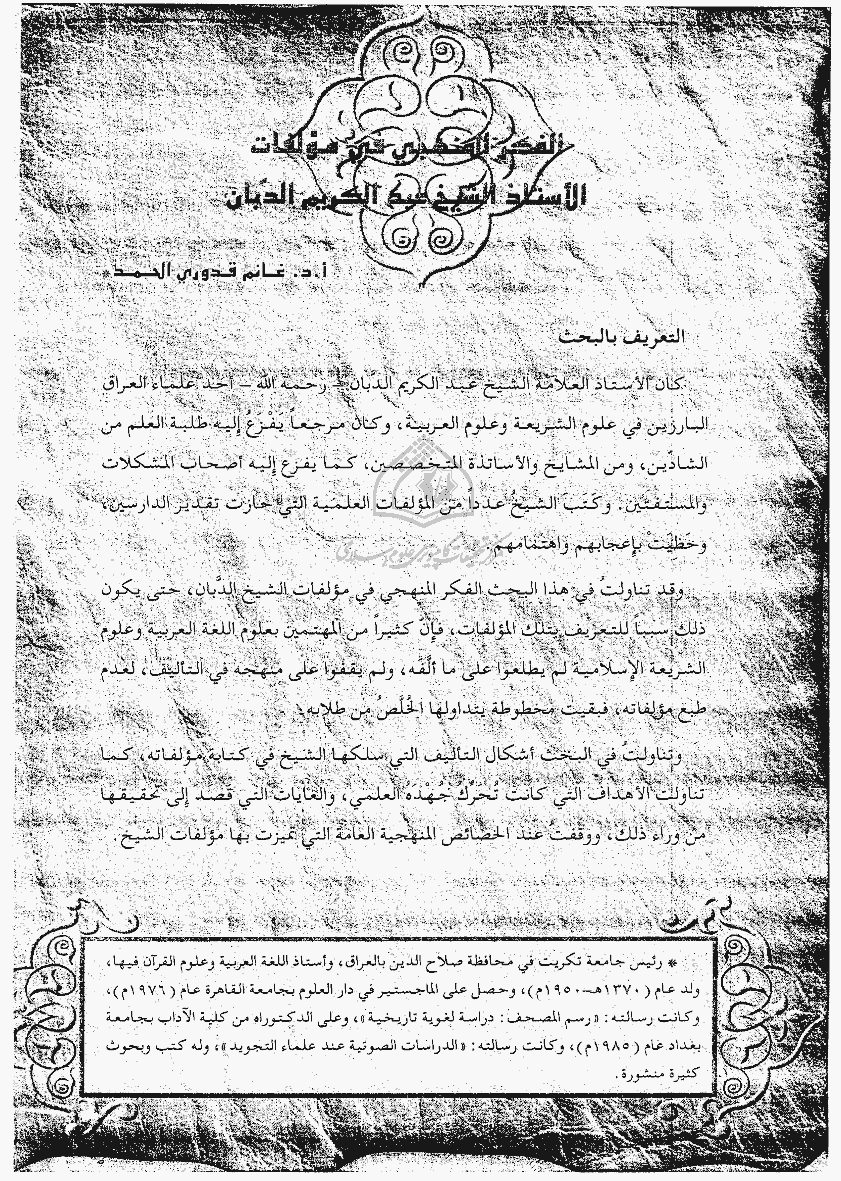 الفكر المنهجي في مؤلفات
الأستاذ الشيخ عبد الكريم الدّبان
أ.د. غانم قدوري الحمد*
التعريف بالبحث
كان الأستاذ العلاّمة الشيخ عبد الكريم الدّبان – رحمه الله – أحد علماء العراق
البارزين في علوم الشريعة وعلوم العربية، وكان مرجعاً يَفْزَعُ إليه طلبة العلم من
الشادّين، ومن المشايخ والأساتذة المتخصصين، كما يفزع إليه أصحاب المشكلات
والمستفتين. وكَتَبَ الشيخُ عدداً من المؤلفات العلمية التي حازت تقدير الدارسين،
وحَظِيَتْ بإعجابهم واهتمامهم.
وقد تناولتُ في هذا البحث الفكر المنهجي في مؤلفات الشيخ الدَّبان، حتى يكون
ذلك سبباً للتعريف بتلك المؤلفات، فإنّ كثيراً من المهتمين بعلوم اللغة العربية وعلوم
الشريعة الإسلامية لم يطلعوا على ما ألَّفَه، ولم يقفوا على منهجه في التأليف، لعدم
طبع مؤلفاته، فبقيت مخطوطة يتداولها الخُلَّصُ من طلابه.
وتناولتُ في البحث أشكال التأليف التي سلكها الشيخ في كتابة مؤلفاته، كما
تناولت الأهداف التي كانت تُحَرِّكُ جُهْدَهُ العلمي، والغايات التي قصد إلى تحقيقها
من وراء ذلك، ووقفتُ عند الخصائص المنهجية العامة التي تميزت بها مؤلفات الشيخ.
* رئيس جامعة تكريت في محافظة صلاح الدين بالعراق، وأستاذ اللغة العربية وعلوم القرآن فيها،
ولد عام (١٣٧٠هـ-١٩٥٠م)، وحصل على الماجستير في دار العلوم بجامعة القاهرة عام (١٩٧٦م)،
وكانت رسالته: «رسم المصحف: دراسة لغوية تاريخية»، وعلى الدكتوراه من كلية الآداب بجامعة
بغداد عام (١٩٨٥م)، وكانت رسالته: «الدراسات الصوتية عند علماء التجويد»، وله كتب وبحوث
كثيرة منشورة.